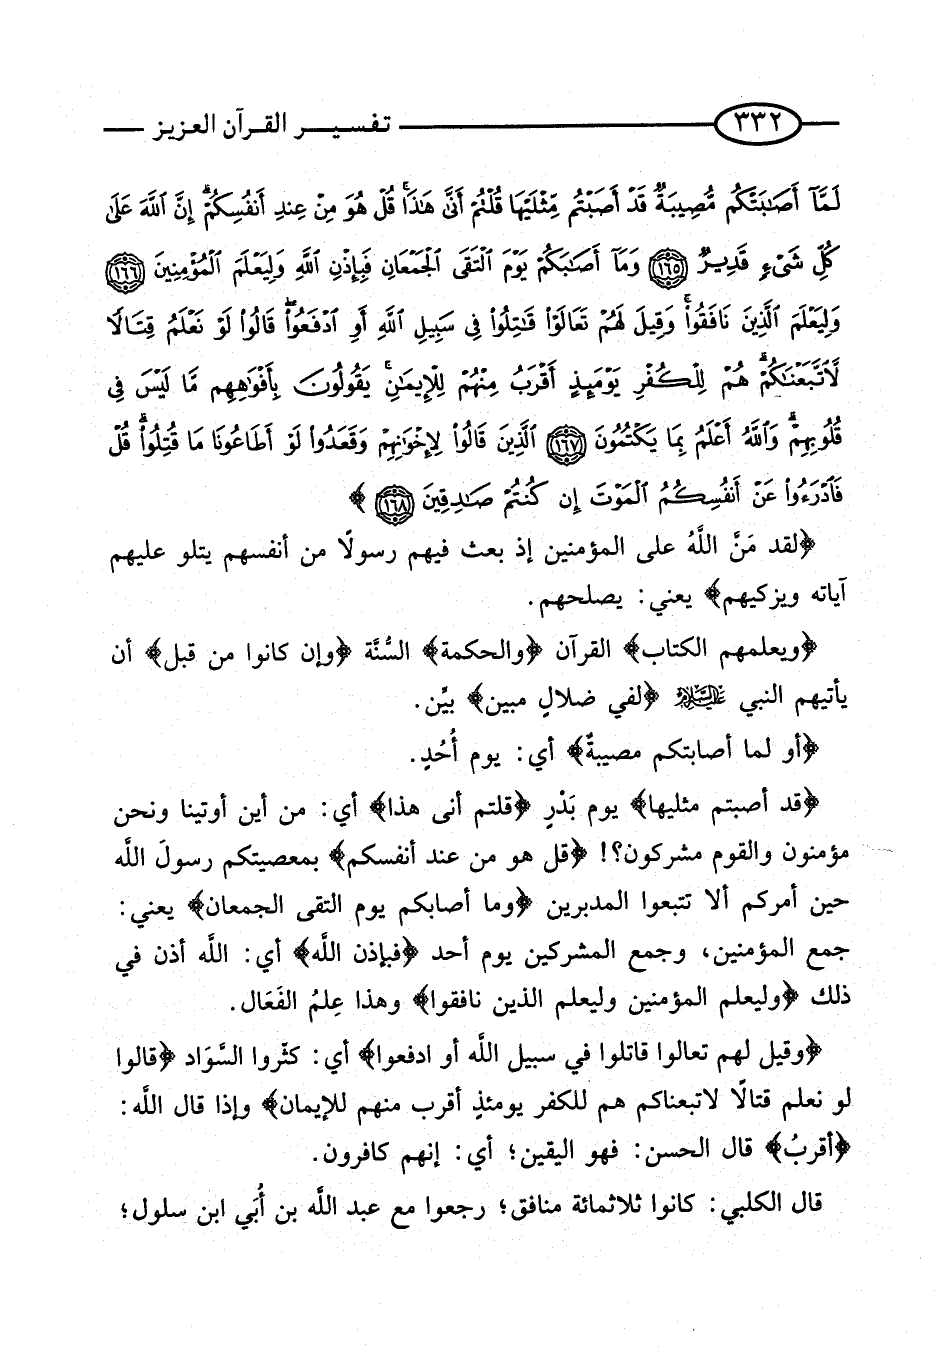 ٣٣٢ تفسير القرآن العزيز
لَمَّآ أَصَٰبَتْكُم مُّصِيبَةٌ قَدْ أَصَبْتُم مِّثْلَيْهَا قُلْتُمْ أَنَّىٰ هَٰذَا ۖ قُلْ هُوَ مِنْ عِندِ أَنفُسِكُمْ ۗ إِنَّ اللَّهَ عَلَىٰ
كُلِّ شَىْءٍ قَدِيرٌ ﴿١٦٥﴾ وَمَآ أَصَٰبَكُمْ يَوْمَ الْتَقَى الْجَمْعَانِ فَبِإِذْنِ اللَّهِ وَلِيَعْلَمَ الْمُؤْمِنِينَ ﴿١٦٦﴾
وَلِيَعْلَمَ الَّذِينَ نَافَقُوا ۚ وَقِيلَ لَهُمْ تَعَالَوْا قَٰتِلُوا فِى سَبِيلِ اللَّهِ أَوِ ادْفَعُوا ۖ قَالُوا لَوْ نَعْلَمُ قِتَالًا
لَّاتَّبَعْنَٰكُمْ ۗ هُمْ لِلْكُفْرِ يَوْمَئِذٍ أَقْرَبُ مِنْهُمْ لِلْإِيمَٰنِ ۚ يَقُولُونَ بِأَفْوَٰهِهِم مَّا لَيْسَ فِى
قُلُوبِهِمْ ۗ وَاللَّهُ أَعْلَمُ بِمَا يَكْتُمُونَ ﴿١٦٧﴾ الَّذِينَ قَالُوا لِإِخْوَٰنِهِمْ وَقَعَدُوا لَوْ أَطَاعُونَا مَا قُتِلُوا ۗ قُلْ
فَادْرَءُوا عَنْ أَنفُسِكُمُ الْمَوْتَ إِن كُنتُمْ صَٰدِقِينَ ﴿١٦٨﴾ ﴾
﴿لقد مَنَّ اللَّهُ على المؤمنين إذ بعث فيهم رسولًا من أنفسهم يتلو عليهم
آياته ويزكيهم﴾ يعني: يصلحهم.
﴿ويعلمهم الكتاب﴾ القرآن ﴿والحكمة﴾ السُّنَّة ﴿وإن كانوا من قبل﴾ أن
يأتيهم النبي عليه السلام ﴿لفي ضلالٍ مبين﴾ بيِّن.
﴿أو لما أصابتكم مصيبةٌ﴾ أي: يوم أُحُدٍ.
﴿قد أصبتم مثليها﴾ يوم بَدْرٍ ﴿قلتم أنى هذا﴾ أي: من أين أوتينا ونحن
مؤمنون والقوم مشركون؟! ﴿قل هو من عند أنفسكم﴾ بمعصيتكم رسولَ اللَّه
حين أمركم ألا تتبعوا المدبرين ﴿وما أصابكم يوم التقى الجمعان﴾ يعني:
جمع المؤمنين، وجمع المشركين يوم أحد ﴿فبإذن اللَّه﴾ أي: اللَّه أذن في
ذلك ﴿وليعلم المؤمنين وليعلم الذين نافقوا﴾ وهذا عِلمُ الفَعَال.
﴿وقيل لهم تعالوا قاتلوا في سبيل اللَّه أو ادفعوا﴾ أي: كثّروا السَّوَاد ﴿قالوا
لو نعلم قتالًا لاتبعناكم هم للكفر يومئذٍ أقرب منهم للإيمان﴾ وإذا قال اللَّه:
﴿أقربُ﴾ قال الحسن: فهو اليقين؛ أي: إنهم كافرون.
قال الكلبي: كانوا ثلاثمائة منافق؛ رجعوا مع عبد اللَّه بن أُبَي ابن سلول؛